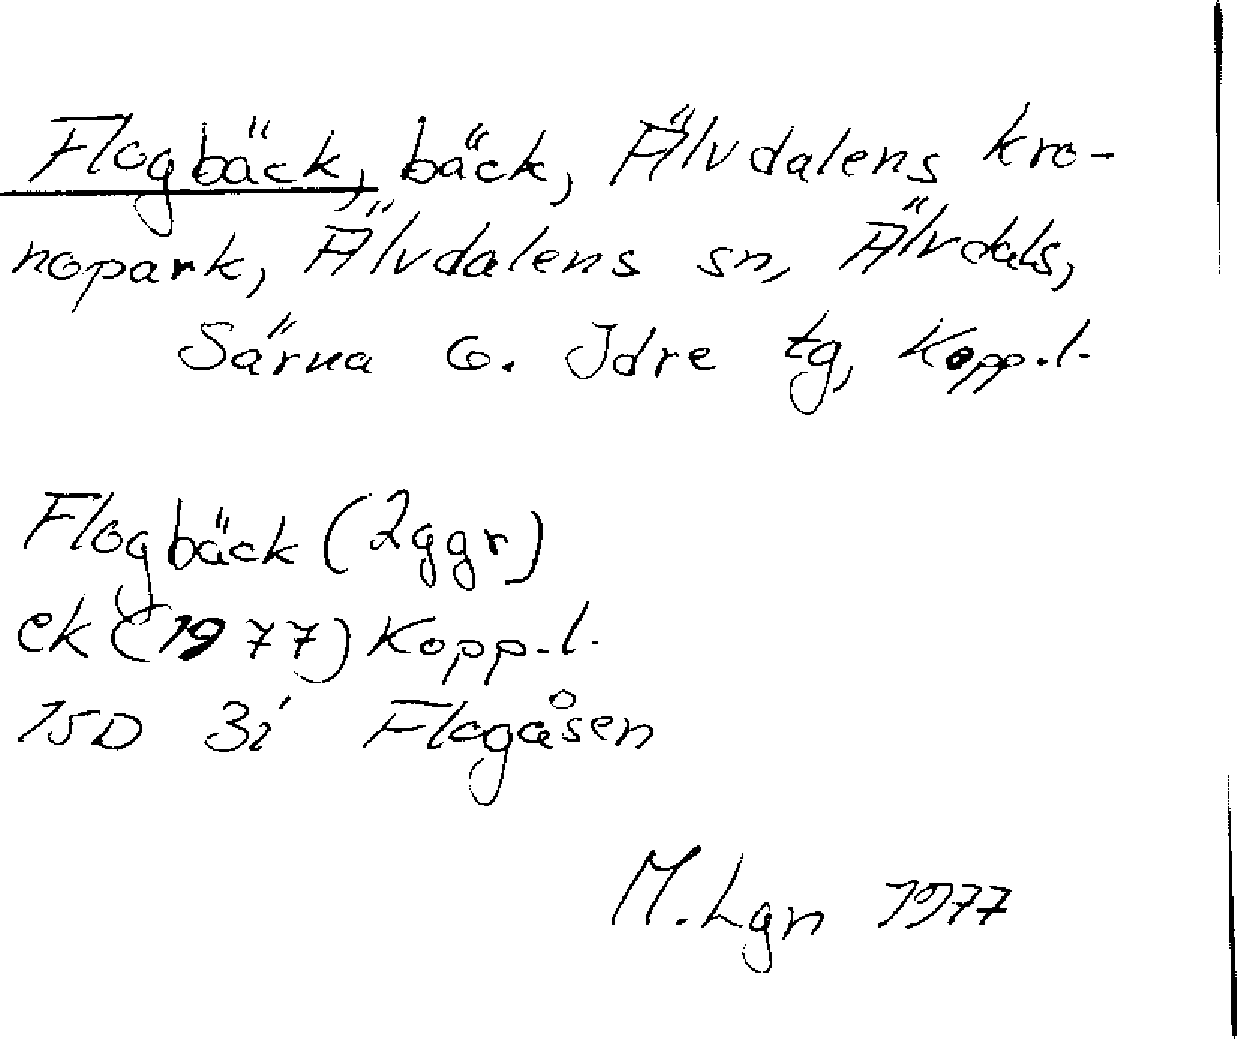 Flogbäck, bäck, Älvdalens kro-
nopark, Älvdalens sn, Älvdals,
Särna o. Idre tg, Kopp.l.
Flogbäck (2ggr)
ek (1977) Kopp.l.
15D 3i Flogåsen
M. Lgn 1977